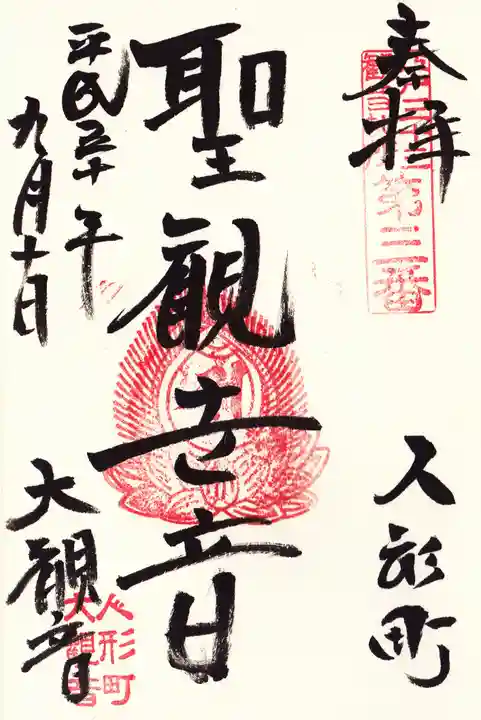 奉拝
第三番
人形町
聖観世音
九月十日
大観音
人形町
大観音